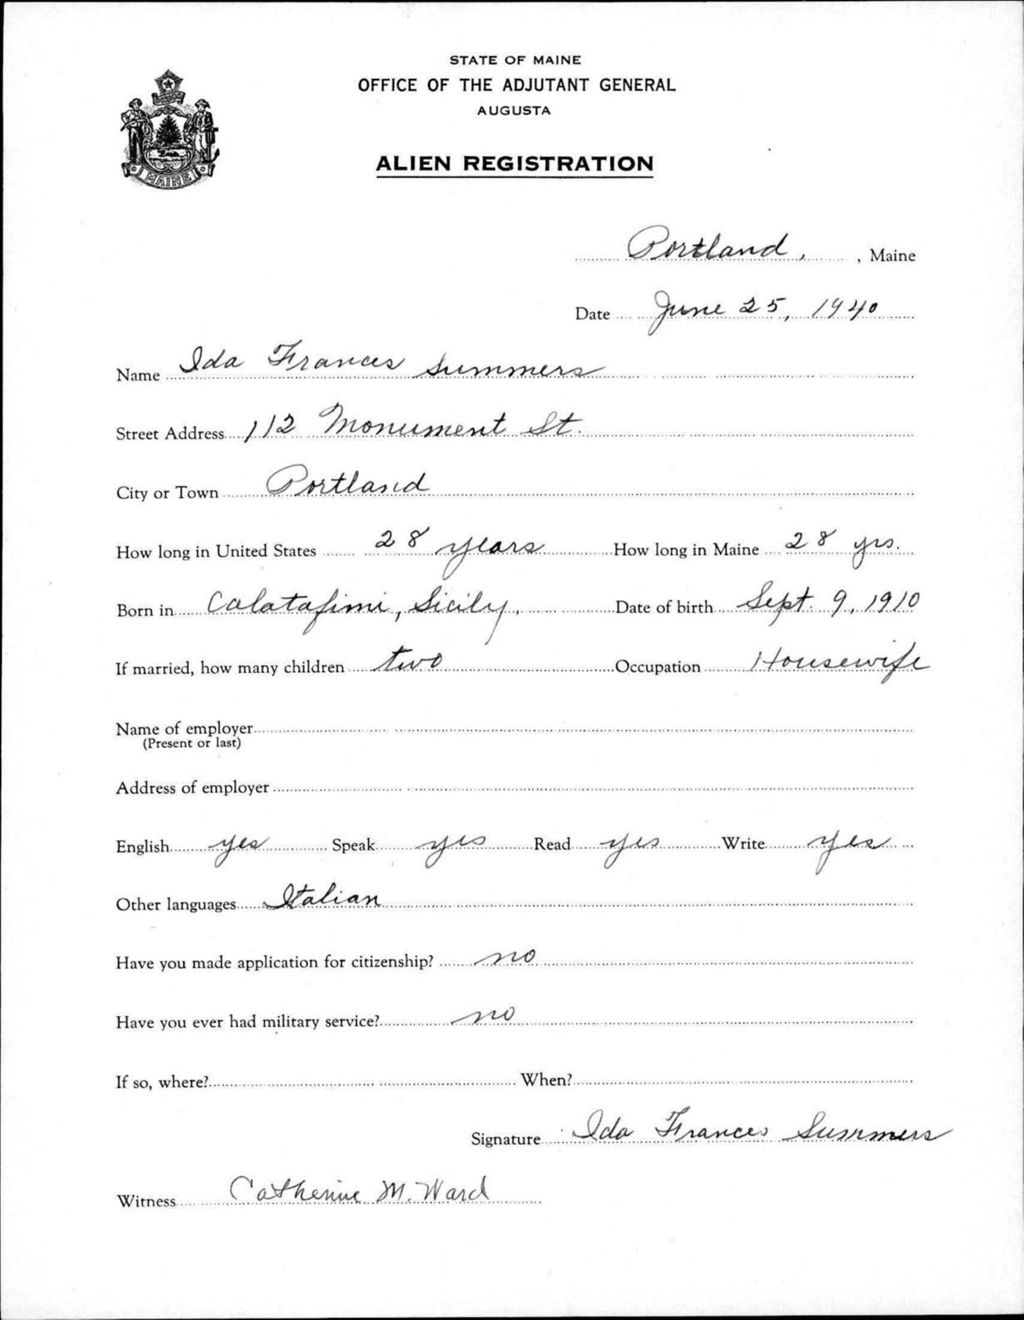 STATE OF MAINE
OFFICE OF THE ADJUTANT GENERAL
AUGUSTA
ALIEN REGISTRATION
MAINE
Portland, , Maine
Date June 25, 1940
Name Ida Frances Summers
Street Address 112 Monument St.
City or Town Portland
How long in United States 28 years How long in Maine 28 yrs.
Born in Calatafimi, Sicily, Date of birth Sept. 9, 1910
If married, how many children two Occupation Housewife
Name of employer
(Present or last)
Address of employer
English yes Speak yes Read yes Write yes
Other languages Italian
Have you made application for citizenship? no
Have you ever had military service? no
If so, where? When?
Signature Ida Frances Summers
Witness Catherine M. Ward